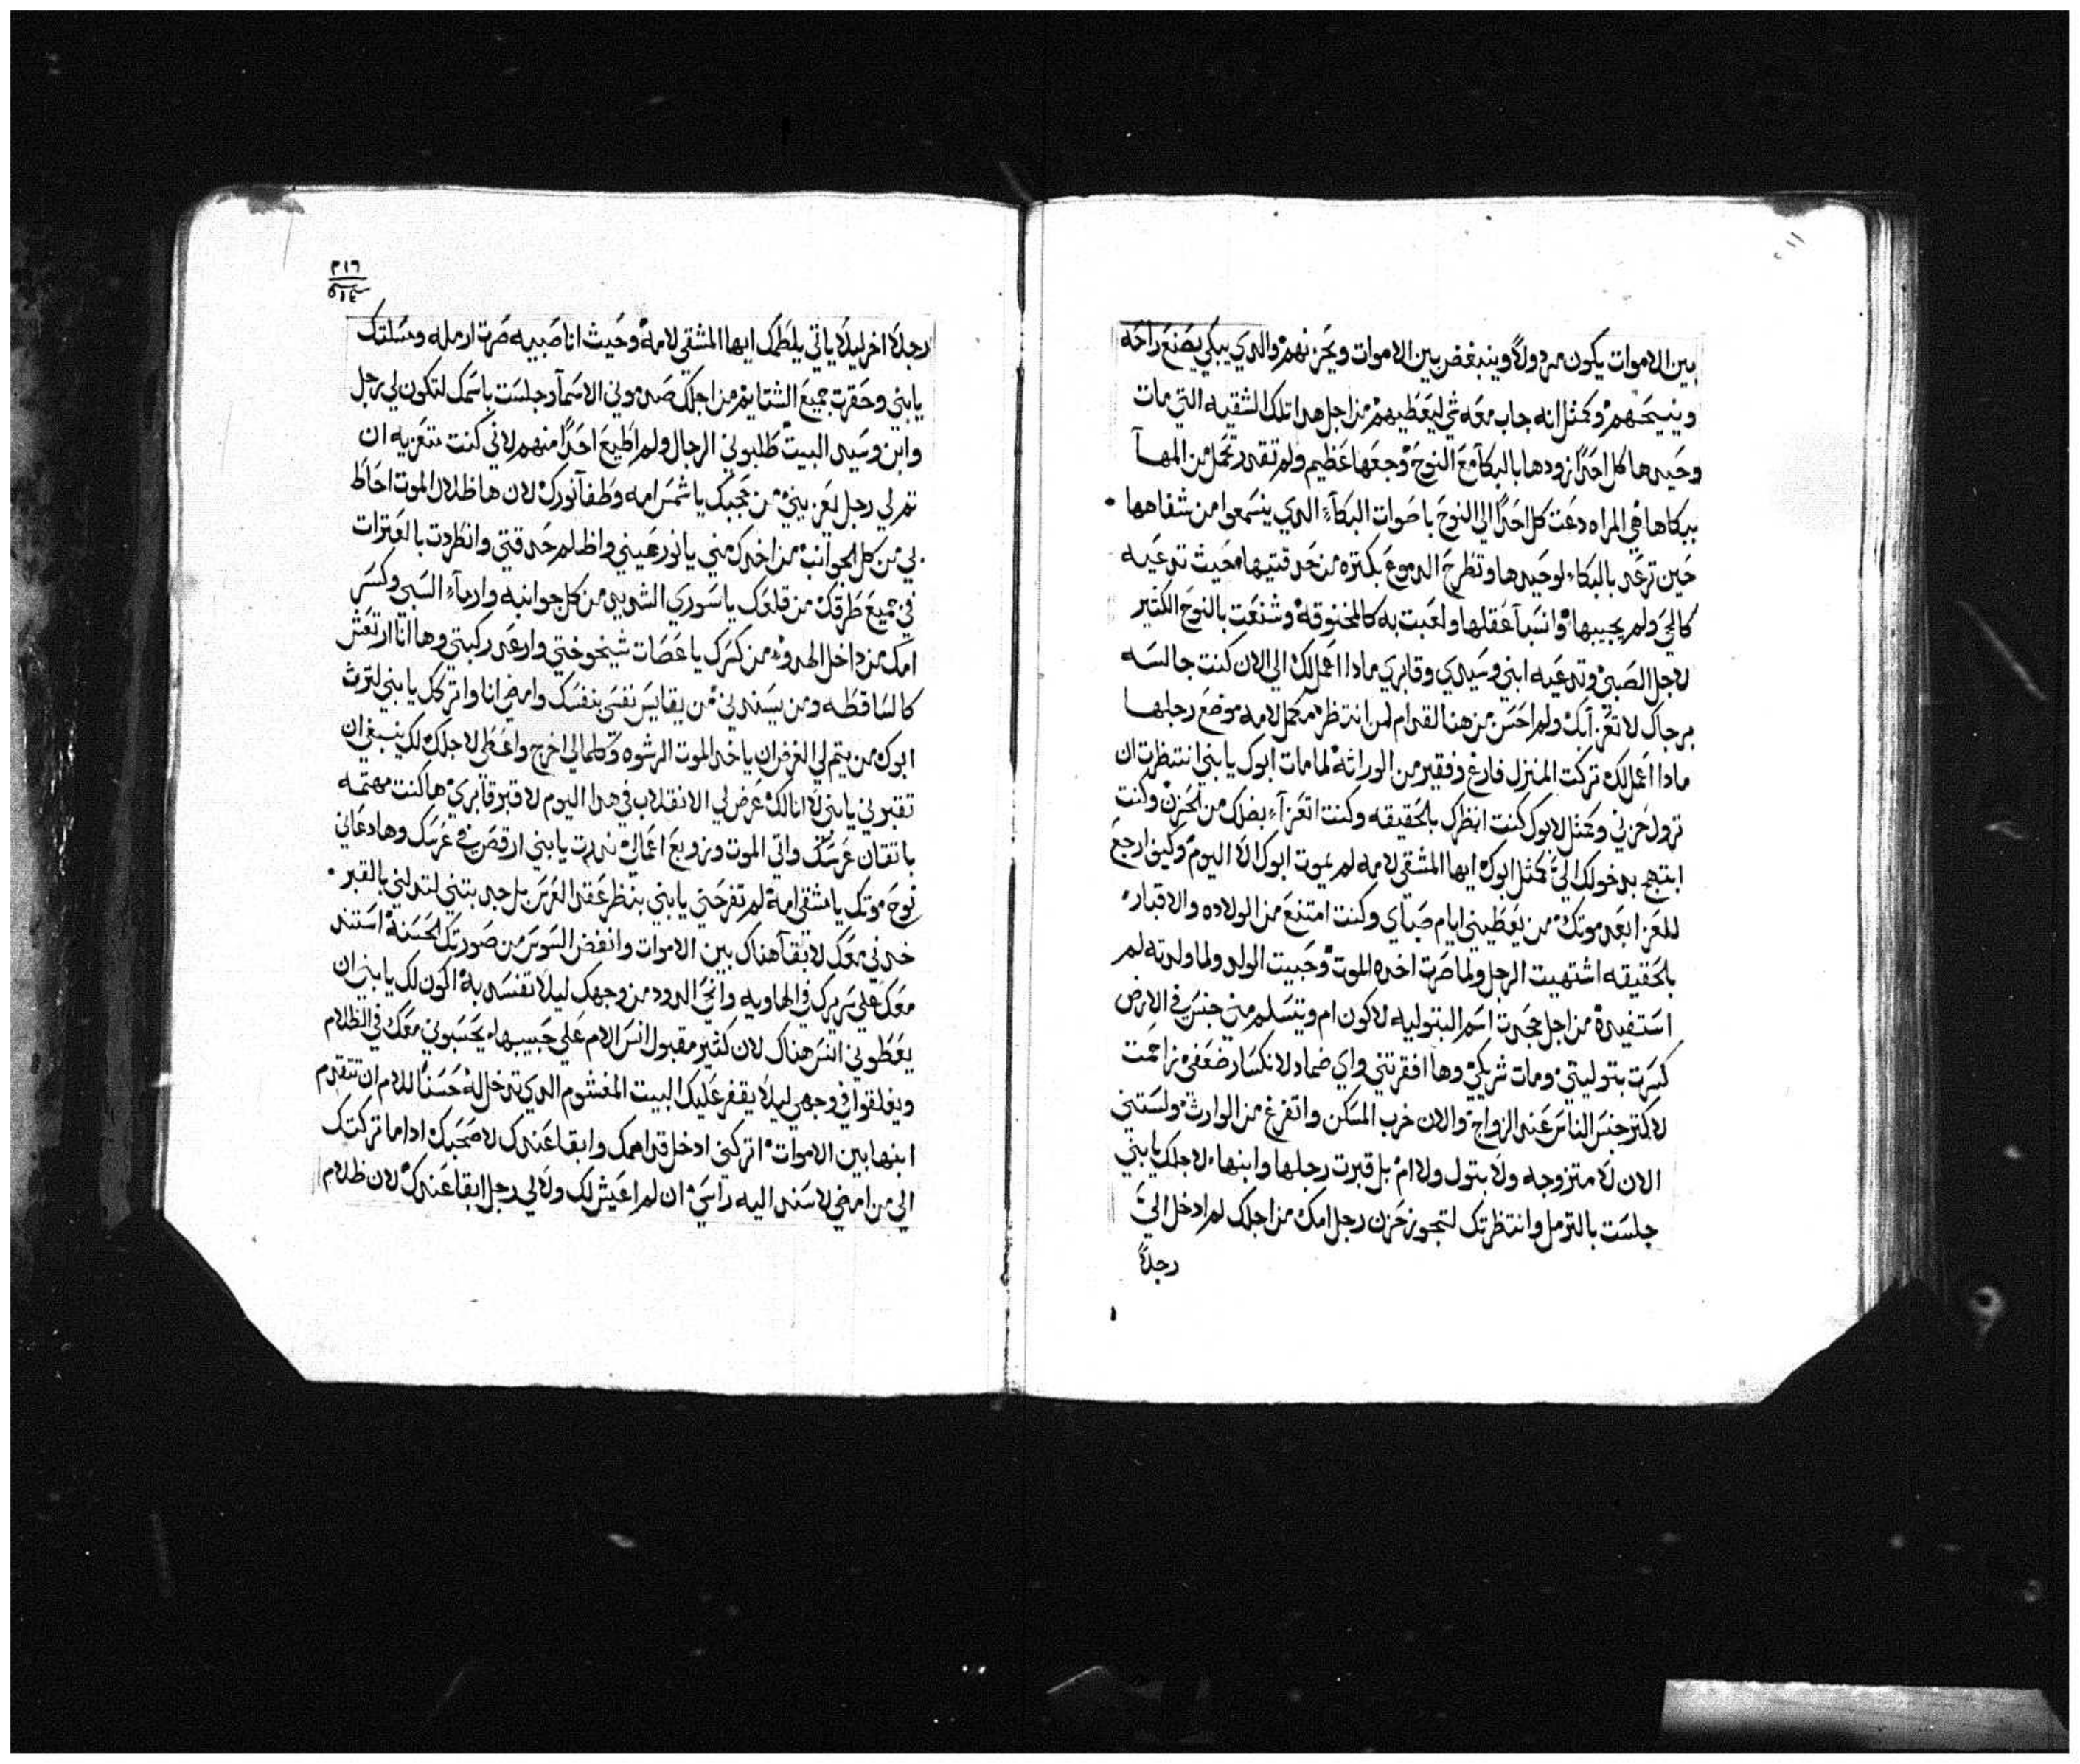 بين الاموات يكون مردولاً وينبغض بين الاموات ويحزنهم والدي يبكي يصنع راحه
وينيحهم وكمثل انه جاب معه شي ليعطيهم من اجل هدا تلك الشقيه التي مات
وحيدها كل احدًا زودها بالبكآ مع النوح وجعها عظيم ولم تقدر تحمل من المهآ
ببكاها هي المراه دعت كل احدًا الي النوح باصوات البكآء الدي ينسمعوا من شفاهها
حين ترعد بالبكاء لوحيدها وتطرح الدموع بكتره من حدقتيها حيث تدعيه
كالحي ولم يجيبها وانسبآ عقلها ولعبت به كالمخنوقه وشنعت بالنوح الكتير
لاجل الصبي وتدعيه ابني وسيدي وقابري مادا اعمل لك الي الان كنت جالسه
برجاك لاتعزآ بك ولم احسن من هنا القدام لمن انتظر مكمل لامه موضع رجلها
مادا اعمل لك تركت المنزل فارغ وفقير من الوراتة لما مات ابوك يابني انتظرت ان
تزول حزني وكمثل لابوك كنت انظرك بالحقيقه وكنت اتعزآء بضلك من الحزن وكنت
ابتهج بدخولك الي كمثل ابوك ايها المشقي لامه لم يموت ابوك الا اليوم وكيف ارجع
للعزا بعد موتك من يعطيني ايام صباي وكنت امتنع من الولاده والاقبار
بالحقيقه اشتهيت الرجل ولما صرت اخده الموت وحبيت الولد ولما ولدته لم
استفيده من اجل حجرت اسم البتوليه لاكون ام ويتسلم مني جنس في الارض
كبرت بتوليتي ومات شريكي وها افقرتني واي ضماد لانكسار ضعفي زاحمت
لاكتر جنس الناس عند الزواج والان خرب المسكن واتفرغ من الوارث ولستني
الان لا متزوجه ولا بتول ولا ام بل قبرت رجلها وابنها لاجلك يابني
جلست بالترمل وانتظرتك لتجوز حزن رجل امك من اجلك لم ادخل الي
رجلاً
٢١٦
رجلاً اخر ليلا ياتي يلطمك ايها المشقي لامه وحيث انا صبييه صرت ارمله ومسلتك
يابني وحقرت جميع الشتايم من اجلك صدموني الاسمآ وجلست باسمك لتكون لي رجل
وابن وسيد البيت طلبوني الرجال ولم اطيع احدًا منهم لاني كنت متعزيه ان
تم لي رجل لعزبيني من يحجبك ياشمس امه وطفآ نورك لان ها ظلال الموت احاط
بي من كل الجوانب من اخدك مني يانور عيني واظلم حدقتي وانطردت بالعترات
في جميع طرقك من قلعك ياسوري الشديد من كل جوانبه وارمآء السبي وكسر
امك من داخل الهدوء من كسرك ياعصات شيخوختي وارعد ركبتي وها انا ارتعش
كالساقطه ومن يسندني من يقايس نفسي بنفسك وامضي انا واتركك يابني لترث
ابوك من يتم لي الغفران ياخد الموت الرشوه وكلما لي اخرج واعطي لاجلك لك ينبغي ان
تقبرني يابني لا انا لك عرض لي الانقلاب في هدا اليوم لا قبر قابري ها كنت مهتمه
باتقان عرسك واتي الموت وزوبع اعمالي ندرت يابني ارقص في عرسك وها دعاني
نوح موتك يامشقي امه لم تفرحني يابني بنظر عقد العرس بل جدبتني لتدلني بالقبر
خدني معك لابقآ هناك بين الاموات وانفض السوس من صورتك الحسنه استند
معك علي سريرك في الهاويه وانحي الدود من وجهك ليلا تفسد به اكون لك يابني ان
يعطوني انس هناك لان كتير مقبول انس الام علي حبيبها يحسبوني معك في الظلام
ويغلقوا في وجهي ليلا يقفر عليك البيت المغشوم الدي تدخل له حسنًا للام ان تتقدم
ابنها بين الاموات اتركني ادخل قدامك وابقا عندك لاصحبك اداما تركتك
الي من امضي لاسند اليه راسي ان لم اعيش لك ولا لي رجل ابقا عندك لان ظلام